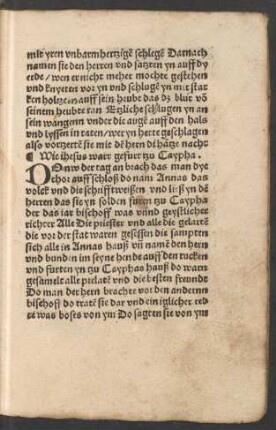 mit yren vnbarmhertzigē schlegē Darnach
namen sie den herren vnd satzten yn auff dy
erde / wen er nicht meher mochte gestehen
vnd knyeten vor yn vnd schlugē yn mit star
ken holtzern auff sein heubt das dz blut vō
seinem heubte ran Etzliche schlugen yn an
sein wangenn vnder die augē auff den hals
vnd lyssen in raten / wer yn hette geschlagen
also vorzertē sie mit dē hern die hātze nacht
¶ Wie ihesus wart gefurt zu Caypha.
DOnw der tag an brach das man dye
thor auff schloß do nam Annas das
volck vnd die schrifftweißen vnd ließ yn dē
herren das sie yn solden furen zu Caypha
der das iar bischoff was vnnd geystliche
richter Alle Die priester vnd alle die gelartē
die vor der stat waren gesessen die sampten
sich alle in Annas hauß vn namē den hern
vnd bunden im seyne hende auff den rucken
vnd furten yn zu Cayphas hauß do warn
gesamelt alle prelatē vnd die besten freunde
Do man der hern brachte vor den andernn
bischoff do tratē sie dar vnd ein iglicher red
te was boses von ym Do sagten sie von ym